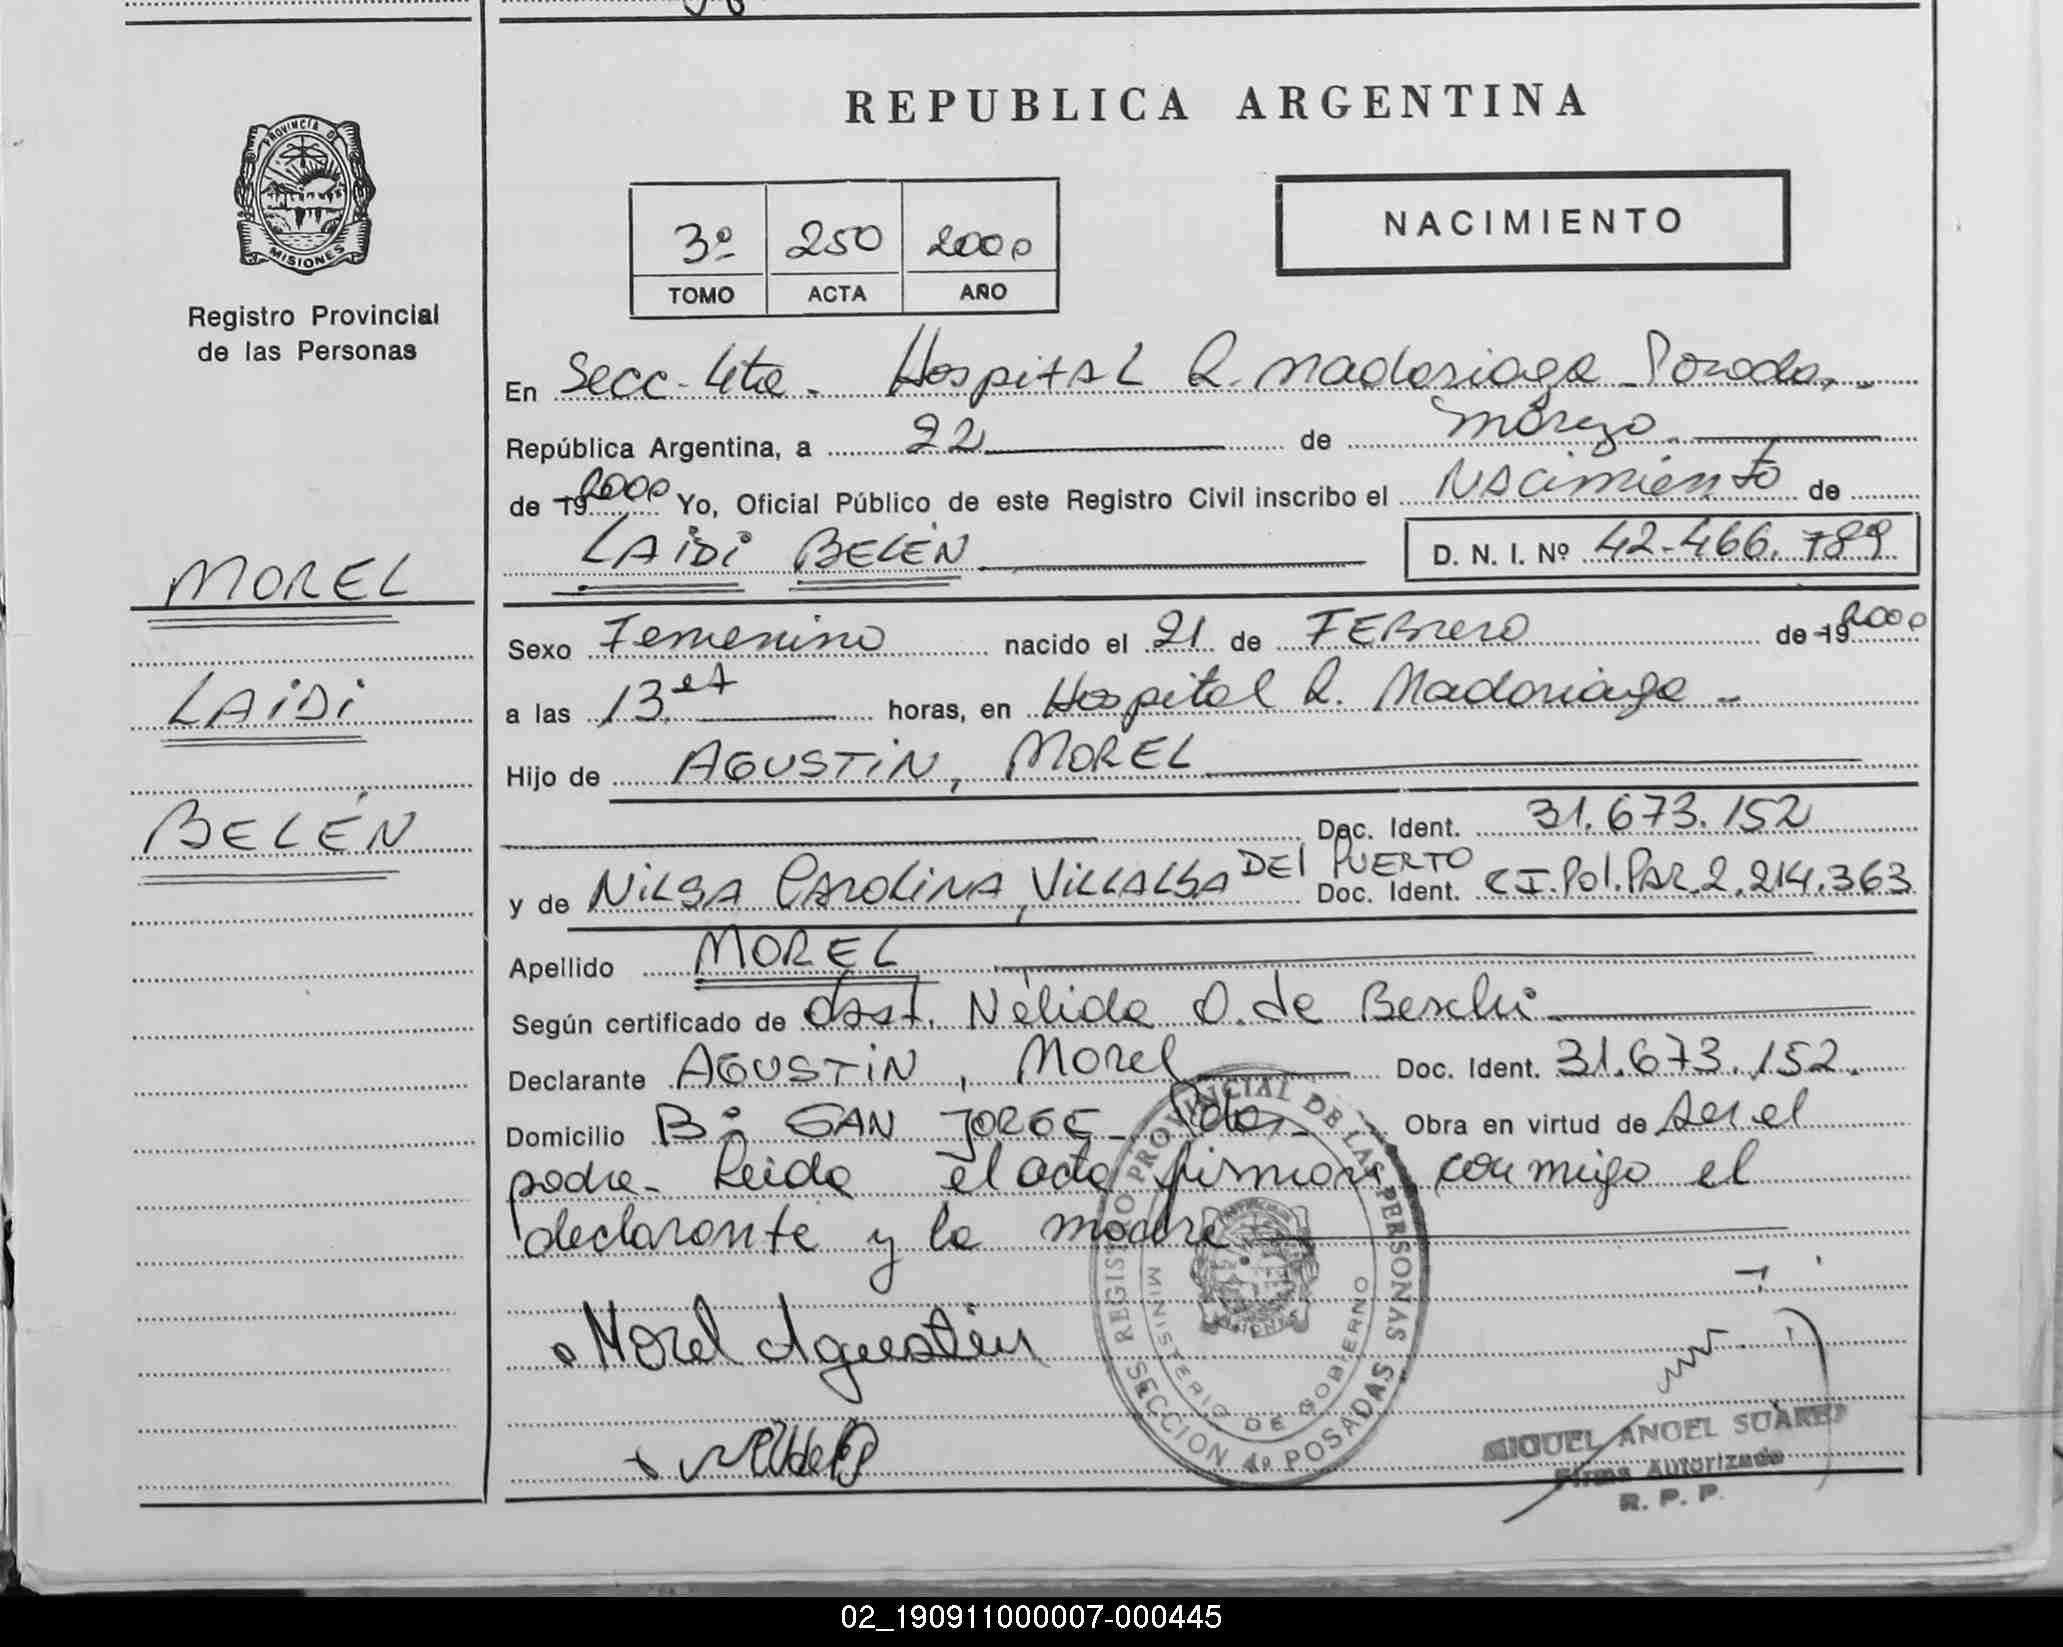 REPUBLICA ARGENTINA
PROVINCIA DE
MISIONES
Registro Provincial
de las Personas
3º 250 2000
TOMO ACTA AÑO
NACIMIENTO
En Secc. 4ta. Hospital R. Madariaga Posadas
República Argentina, a 22 de marzo
de 19 2000 Yo, Oficial Público de este Registro Civil inscribo el Nacimiento de
LAiDi BELÉN D. N. I. Nº 42.466.789
MOREL
LAiDi
BELÉN
Sexo Femenino nacido el 21 de FEBrero de 19 2000
a las 13 horas, en Hospital R. Madariaga
Hijo de AGUSTiN, MOREL
Doc. Ident. 31.673.152
y de NiLSA CAROLINA, ViLLALBA DEl PUERTO Doc. Ident. CI.Pol.PAR.2.214.363
Apellido MOREL
Según certificado de Obst. Nélida O. de
Declarante AGUSTiN, Morel Doc. Ident. 31.673.152.
Domicilio Bº SAN JORGE Pdas. Obra en virtud de ser el
padre. Leida el acta firman conmigo el
declarante y la madre
Morel Agustin
REGISTRO PROVINCIAL DE LAS PERSONAS
MINISTERIO DE GOBIERNO
SECCION 4º POSADAS
MIGUEL ANGEL SUAREZ
Firma Autorizada
R. P. P.
02_190911000007-000445